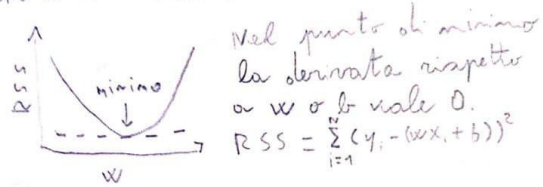 RSS
minimo
W
Nel punto di minimo
la derivata rispetto
a w o b vale 0.
RSS = N∑i=1 (yi - (wxi + b))²